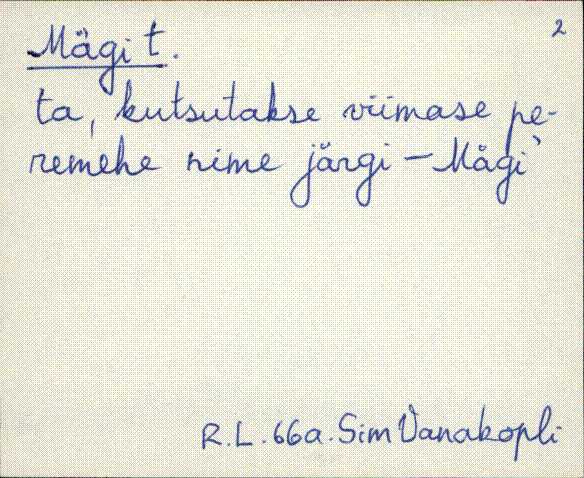 2
Mägi t.
ta, kutsutakse viimase pe-
remehe nime järgi - Mägi`
R.L. 66a. Sim Vanakopli